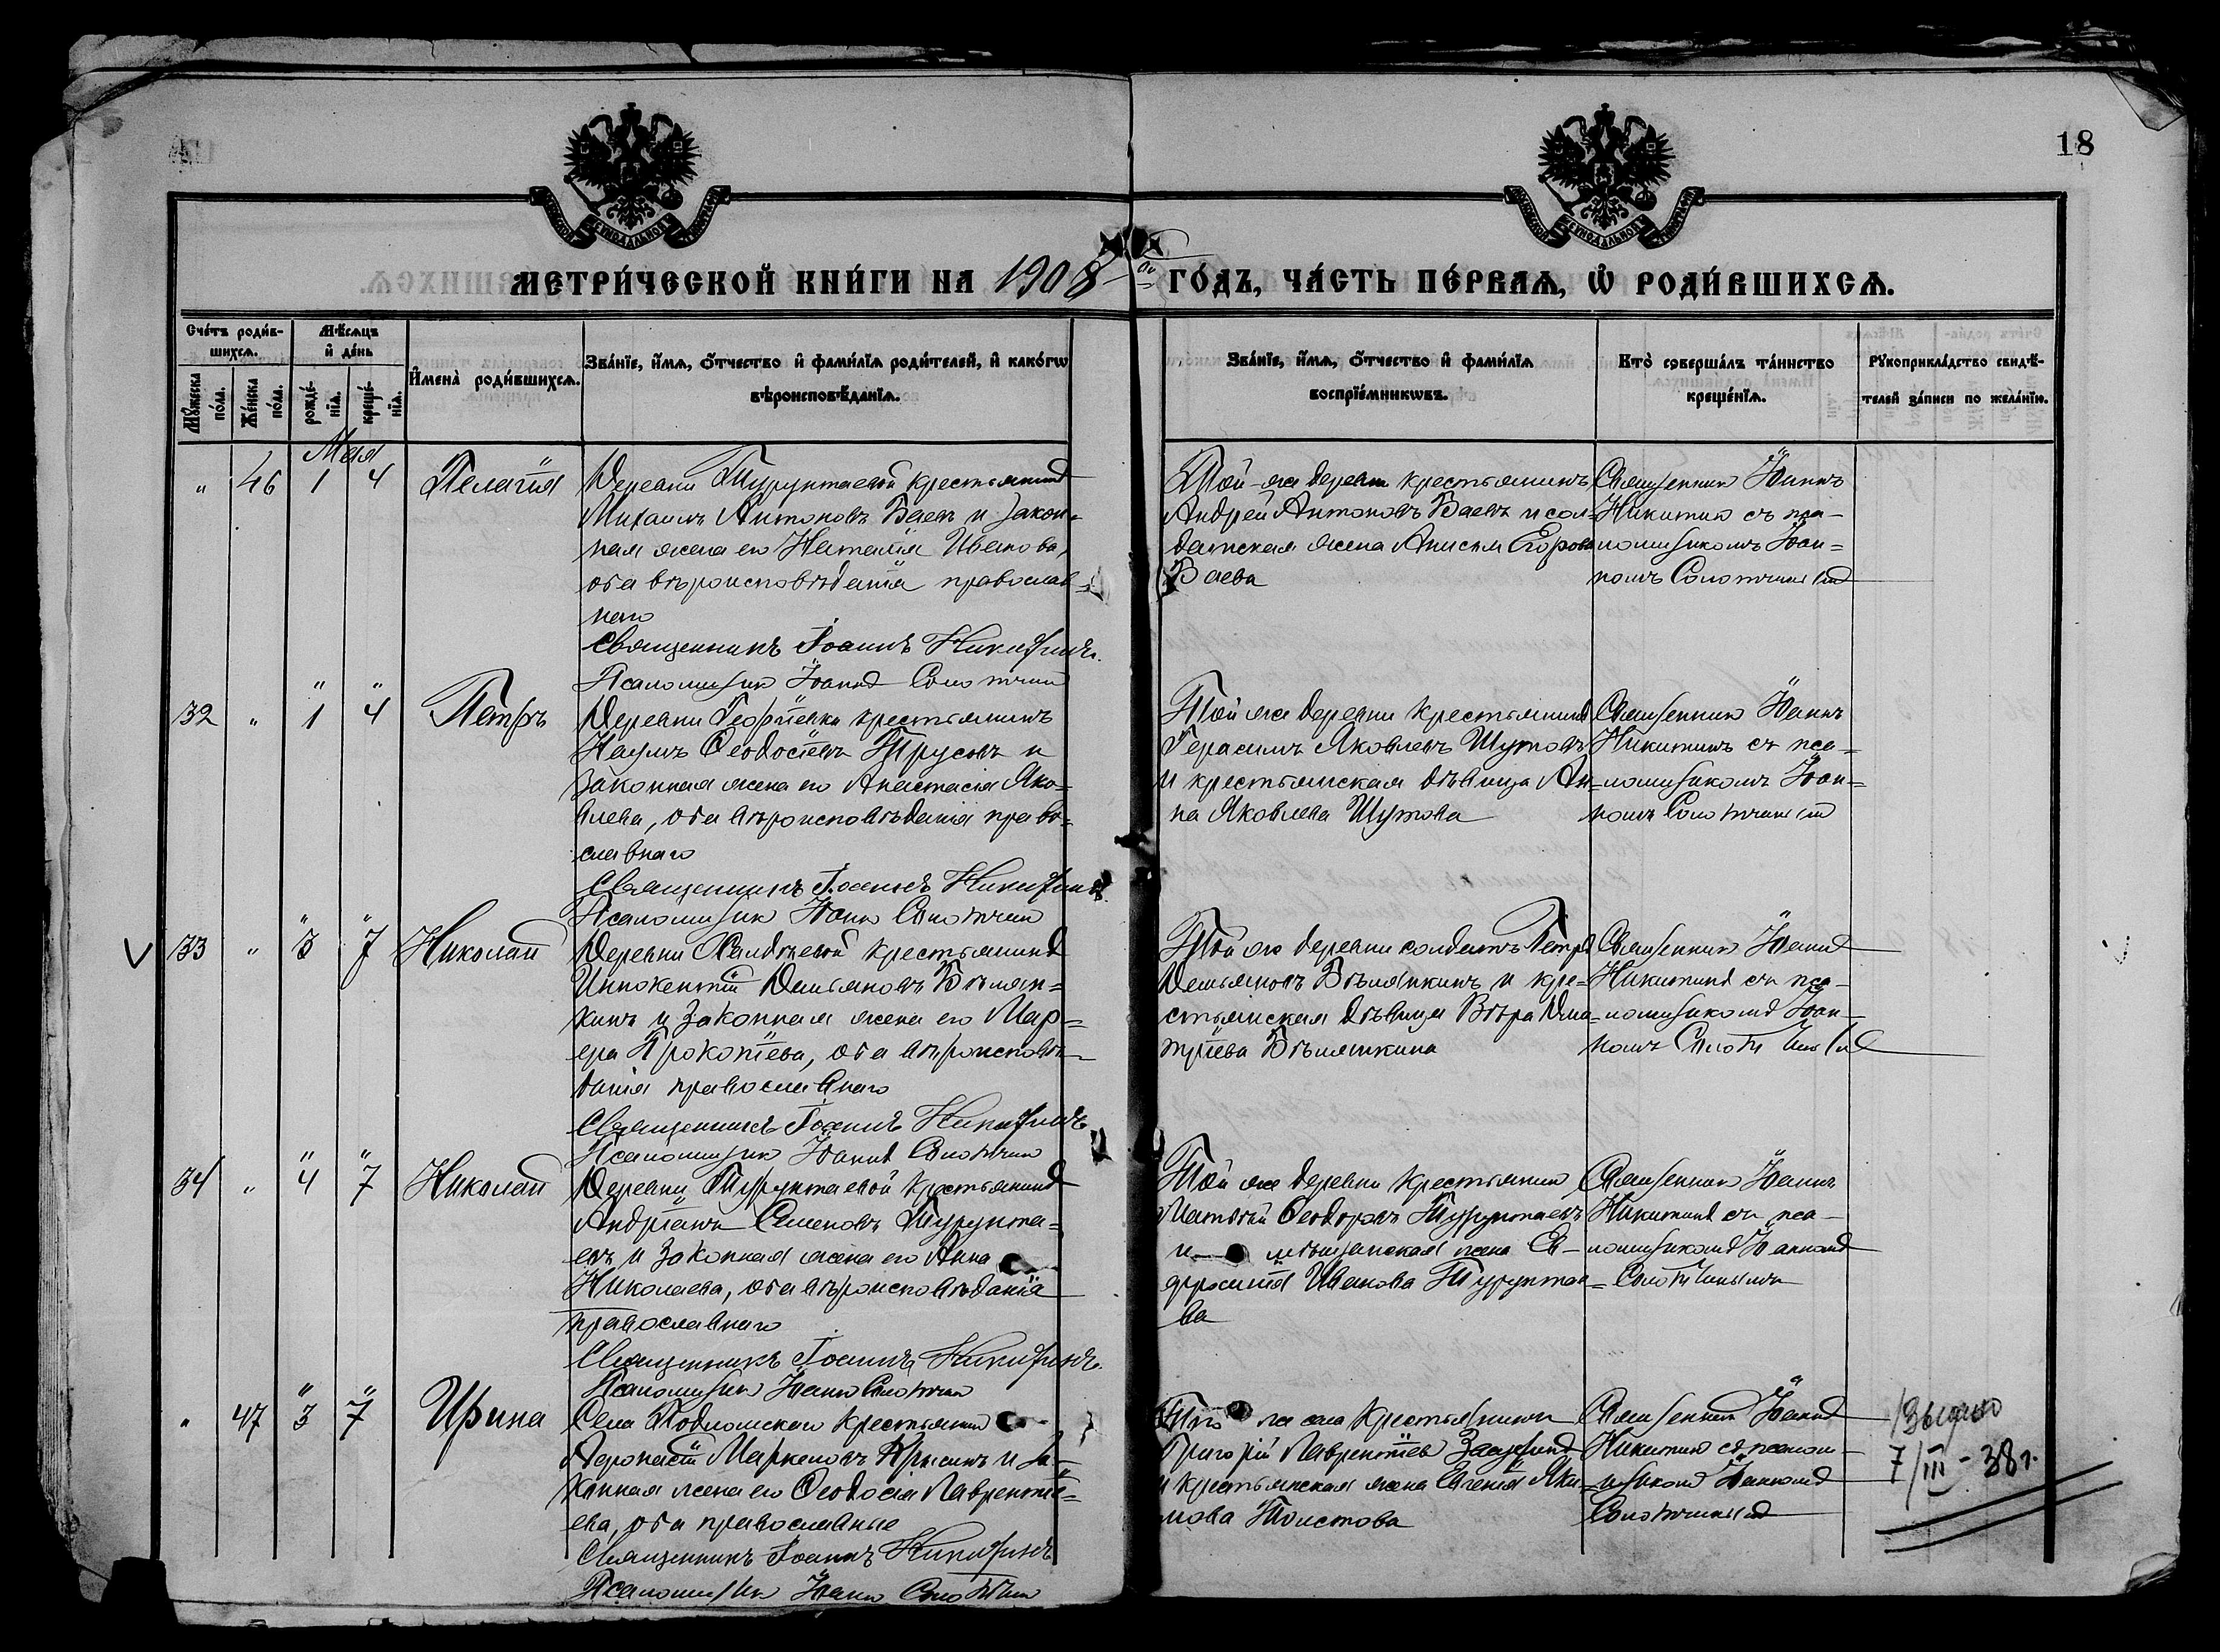 18
МЕТРИ́ЧЕСКОЙ КНИ́ГИ НА 1908 ГО́ДЪ, ЧА́СТЬ ПЕ́РВАѦ, Ѽ РОДИ́ВШИХСѦ.
Сче́тъ роди́в-
шихсѧ.
Мꙋ́жеска
по́ла.
Же́нска
по́ла.
Мѣ́сѧцъ
и҆ де́нь
рожде́-
нїѧ.
креще́-
нїѧ.
И҆мена̀ роди́вшихсѧ.
Зва́нїе, и҆́мѧ, ѻ҆́тчество и҆ фами́лїѧ роди́телей, и҆ како́гѡ
вѣроисповѣ́данїѧ.
Зва́нїе, и҆́мѧ, ѻ҆́тчество и҆ фами́лїѧ
воспрїе́мникѡвъ.
Кто̀ соверша́лъ та́инство
креще́нїѧ.
Рꙋкоприкла́дство свидѣ́-
телей за́писи по жела́нїю.
Мая
" 46 1 4 Пелагія
Деревни Турунтаевой крестьянинъ
Михаилъ Антоновъ Баевъ и закон-
ная жена его Наталія Иванова,
оба вѣроисповѣданія православ-
наго
Священникъ Іоаннъ Никитинъ.
Псаломщик Іоаннъ
Той-же деревни крестьянинъ
Андрей Антоновъ Баевъ и сол-
датская жена Анисья Егорова
Баева
Священник Іоаннъ
Никитин съ пса-
ломщикомъ Іоан-
номъ
32 " 1 4 Петръ
Деревни Георгіевки крестьянинъ
Наумъ Ѳеодосіевъ Трусовъ и
законная жена его Анастасія Яко-
влева, оба вѣроисповѣданія право-
славнаго
Священникъ Іоаннъ Никитинъ.
Псаломщик Іоанн
Той же деревни крестьянинъ
Герасимъ Яковлевъ Шутовъ
и крестьянская дѣвица Ан-
на Яковлева Шутова
Священник Іоаннъ
Никитинъ съ пса-
ломщикомъ Іоан-
номъ
33 " 3 7 Николай
Деревни крестьянинъ
Иннокентій Демьяновъ Бѣлян-
кинъ и законная жена его Мар-
Прокопіева, оба вѣроисповѣ-
данія православнаго
Священникъ Іоаннъ Никитинъ
Псаломщик Іоаннъ
Той же деревни солдатъ Петръ
Демьяновъ Бѣлянкинъ и кре-
стьянская дѣвица Вѣра Дми-
тріева Бѣлянкина
Священник Іоаннъ
Никитинъ съ пса-
ломщикомъ Іоан-
номъ
34 " 4 7 Николай
Деревни Турунтаевой крестьянинъ
Андріанъ Семеновъ Турунта-
евъ и законная жена его Анна
Николаева, оба вѣроисповѣданія
православнаго
Священникъ Іоаннъ Никитинъ.
Псаломщик Іоанн
Той же деревни крестьянин
Матвѣй Ѳеодоровъ Турунтаевъ
и мѣщанская жена Ев-
фросинія Иванова Турунтае-
ва
Священник Іоаннъ
Никитинъ съ пса-
ломщикомъ Іоанномъ
" 47 3 7 Ирина
Села Подломскаго крестьянин
Маркеловъ и за-
конная жена его Ѳеодосія Лавренті-
ева, оба православные
Священникъ Іоаннъ Никитинъ
Псаломщик Іоанн
Того же села крестьянинъ
Григорій Лаврентіев
и крестьянская жена Евгенія Яки-
мова Толстова
Священник Іоаннъ
Никитин съ псалом-
щиком Іоанномъ
Выдано
7/III-38 г.